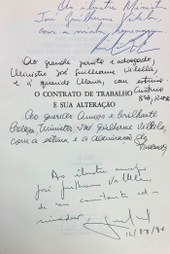 Ao ilustre Ministro
José Guilherme Villela,
com a minha homenagem
Ao grande jurista e advogado,
Ministro José Guilherme Villela,
e à grande Maria, com estima
O CONTRATO DE TRABALHO
E SUA ALTERAÇÃO
Ao querido Amigo e brilhante
Colega, Ministro José Guilherme Villela,
com a estima e a admiração do
Ao ilustre amigo
José Guilherme Villela
de seu constante ad-
mirador